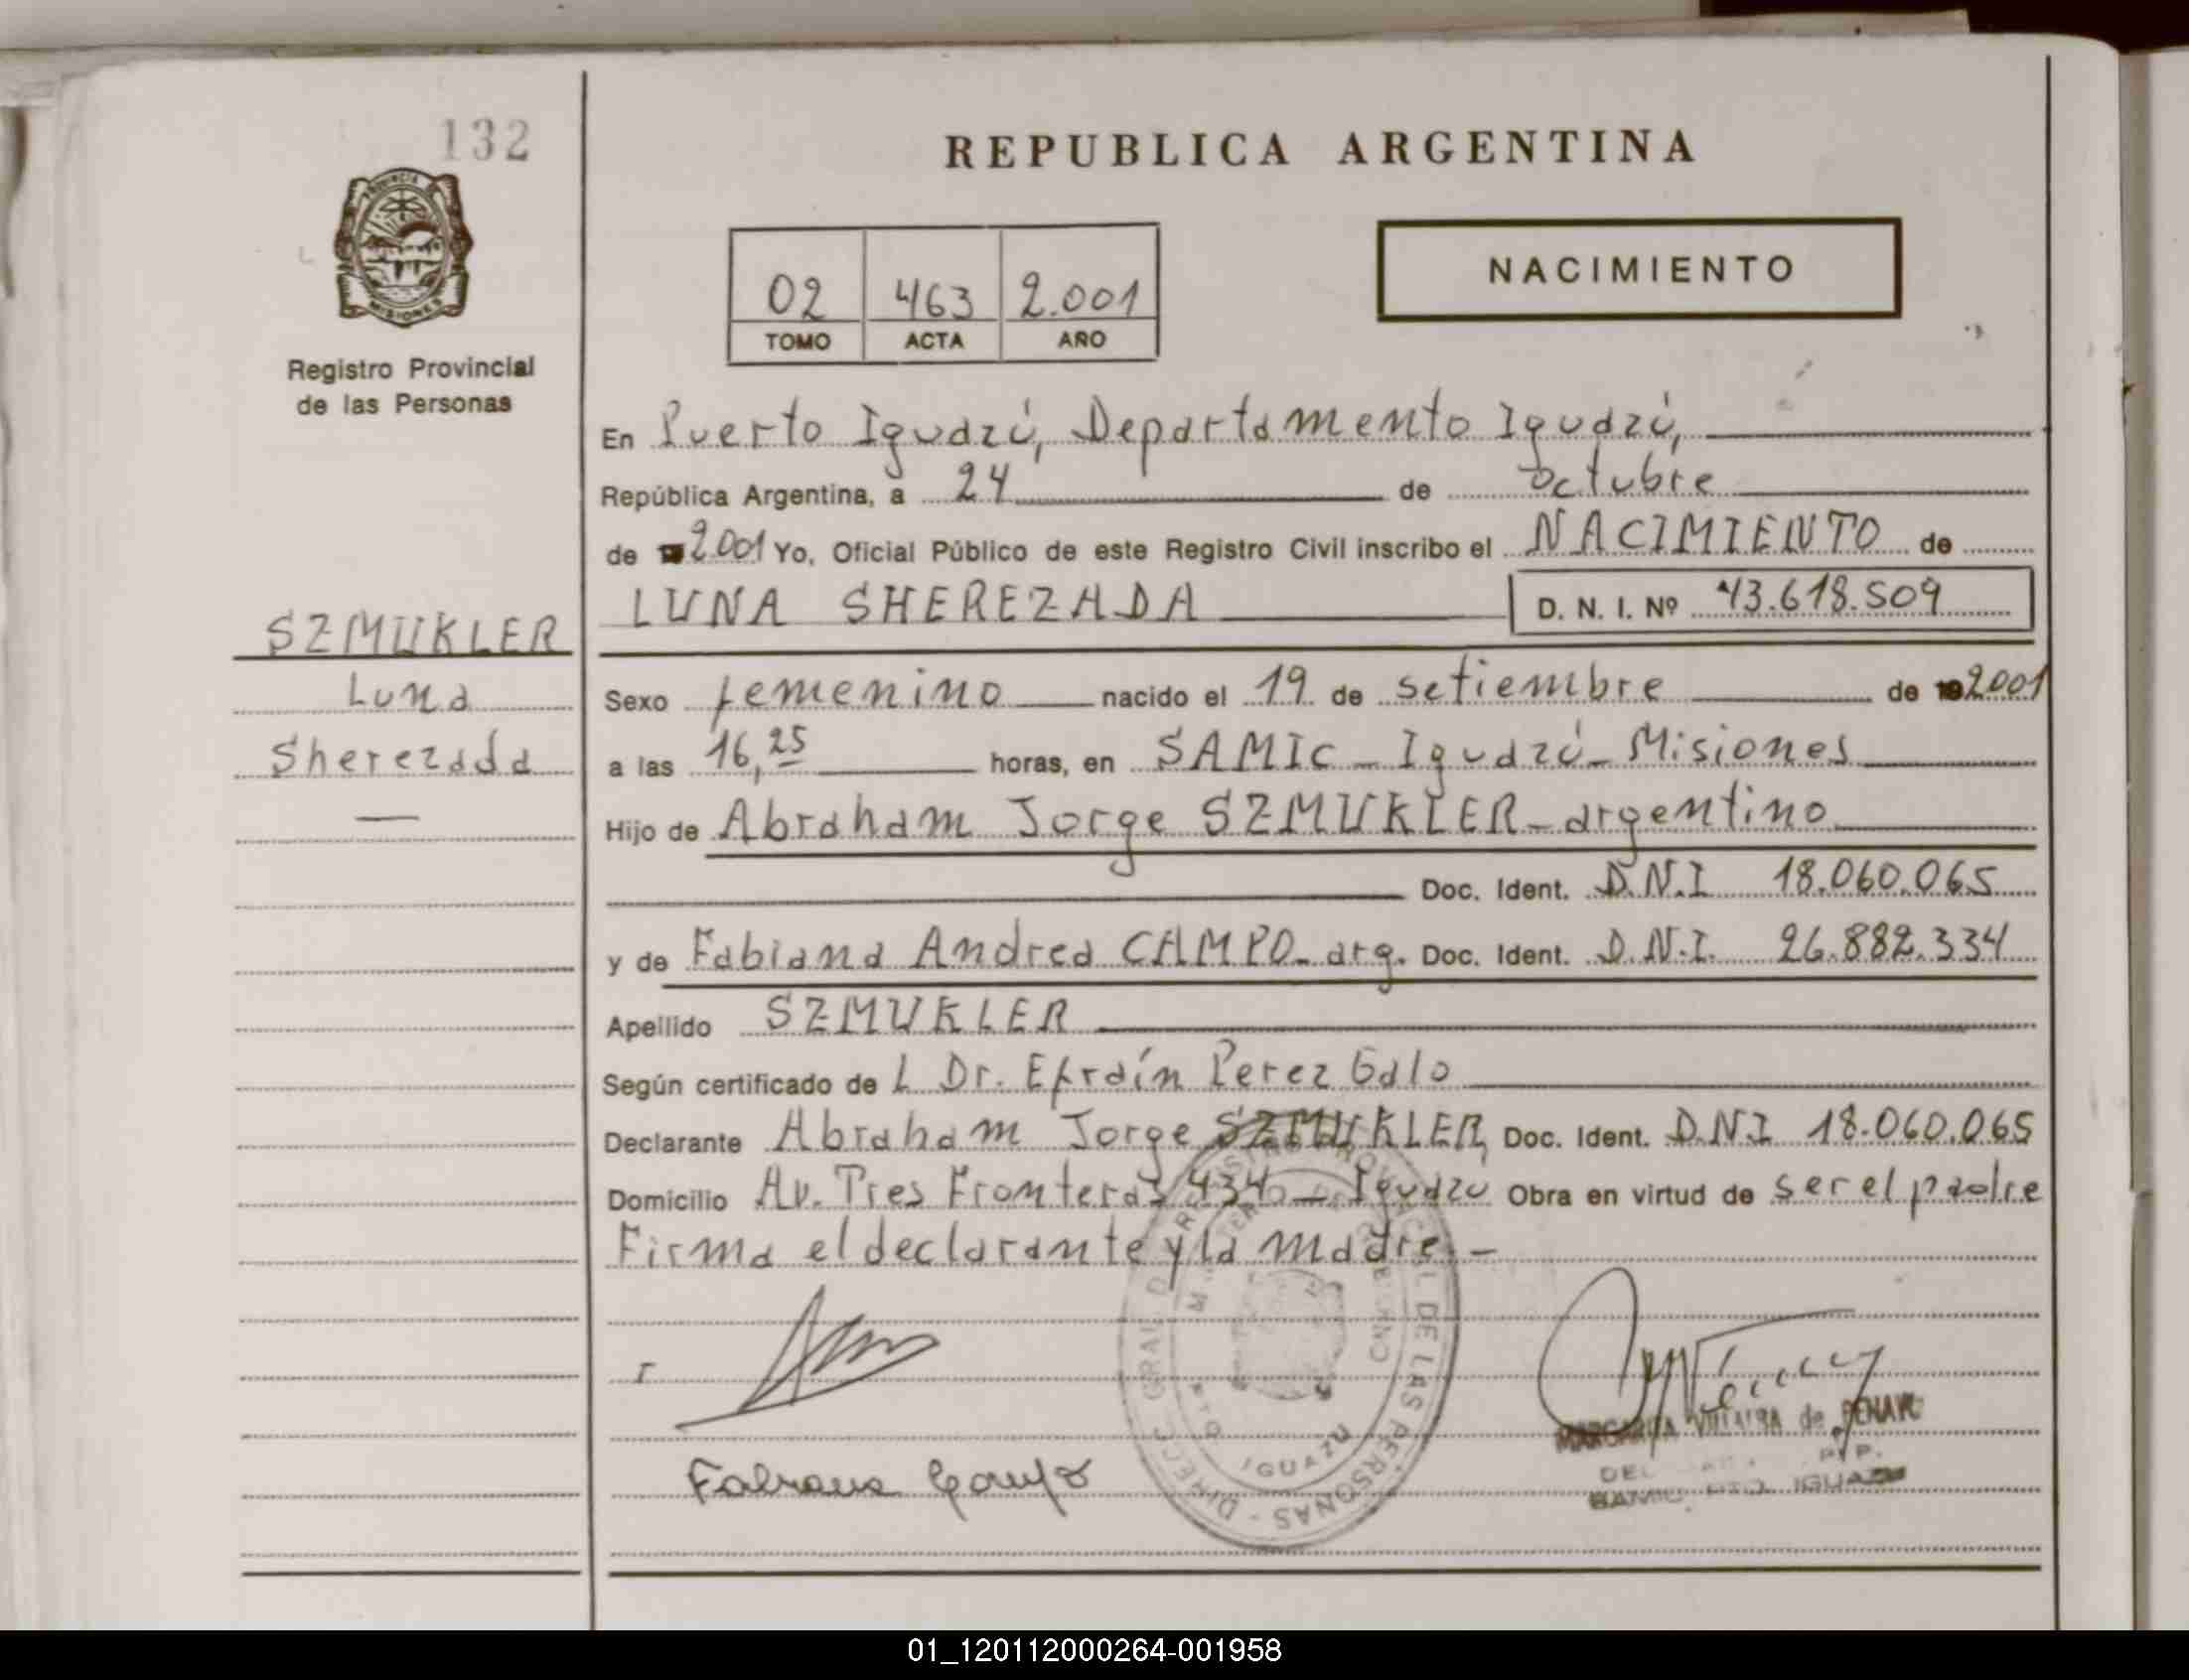 132
REPUBLICA ARGENTINA
PROVINCIA
MISIONES
Registro Provincial
de las Personas
02 463 2.001
TOMO ACTA AÑO
NACIMIENTO
En Puerto Iguazú, Departamento Iguazú,
República Argentina, a 24 de octubre
de 2.001 Yo, Oficial Público de este Registro Civil inscribo el NACIMIENTO de
LUNA SHEREZADA D. N. I. Nº 43.618.509
SZMUKLER
Luna
Sherezada
Sexo femenino nacido el 19 de setiembre de 2001
a las 16,25 horas, en SAMIC - Iguazú - Misiones
Hijo de Abraham Jorge SZMUKLER - argentino
Doc. Ident. D.N.I 18.060.065
y de Fabiana Andrea CAMPO - arg. Doc. Ident. D.N.I. 26.882.334
Apellido SZMUKLER
Según certificado de L Dr. Efraín Perez Galo
Declarante Abraham Jorge SZMUKLER, Doc. Ident. D.N.I 18.060.065
Domicilio Av. Tres Fronteras 434 - Iguazú Obra en virtud de ser el padre
Firma el declarante y la madre. -
Fabiana Campo
DIRECC. GRAL. DEL REGISTRO PROVINCIAL DE LAS PERSONAS
PTO. IGUAZU
MARGARITA VILLALBA de
SAMIC. PTO. IGUAZU
01_120112000264-001958